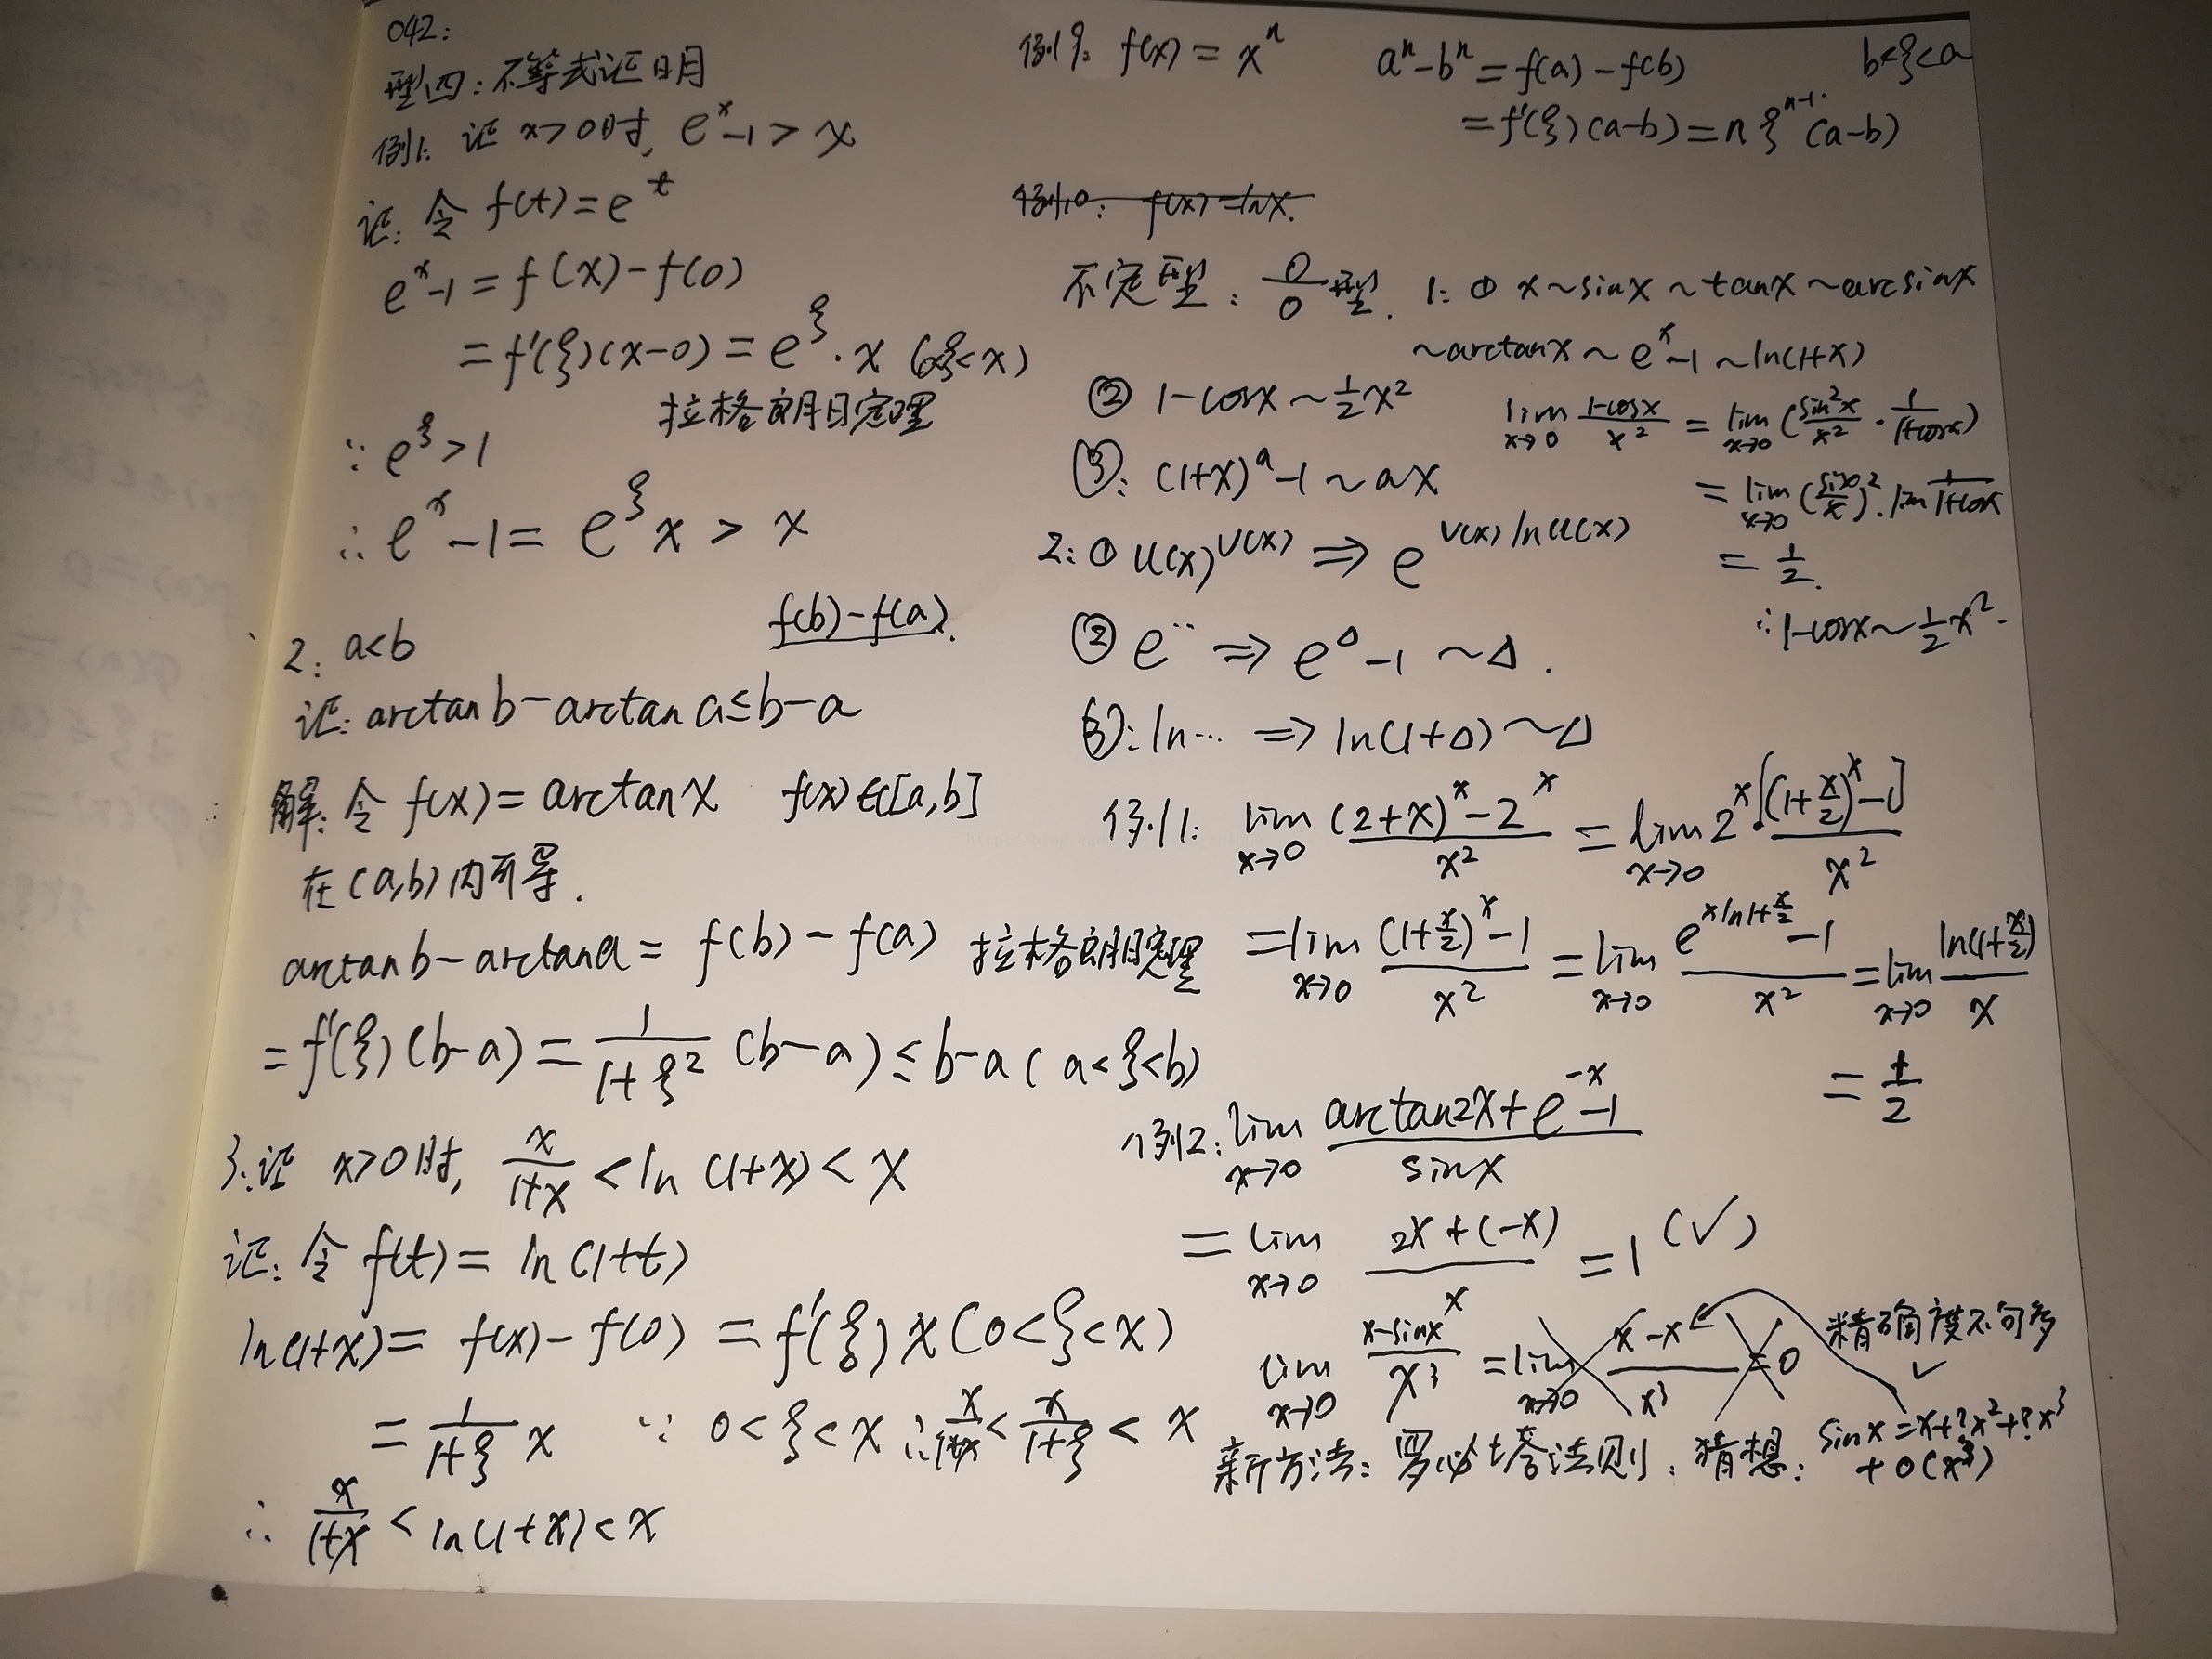 042:
型四:不等式证明
例1: 证 x>0时, e^x-1 > x
证: 令 f(t)=e^t
e^x-1 = f(x)-f(0)
=f'(ξ)(x-0)=e^ξ·x (0<ξ<x)
拉格朗日定理
∵ e^ξ>1
∴ e^x-1= e^ξ x > x
f(b)-f(a).
2: a<b
证: arctan b-arctan a≤b-a
解: 令 f(x)= arctan x f(x)∈C[a,b]
在(a,b)内可导.
arctan b-arctan a= f(b)-f(a) 拉格朗日定理
=f'(ξ)(b-a)=\frac{1}{1+ξ^2}(b-a)≤b-a( a<ξ<b)
3:证 x>0时, \frac{x}{1+x}<ln(1+x)<x
证: 令 f(t)= ln(1+t)
ln(1+x)= f(x)-f(0) =f'(ξ)x(0<ξ<x)
=\frac{1}{1+ξ}x ∵ 0<ξ<x ∴\frac{x}{1+x}<\frac{x}{1+ξ}<x
∴ \frac{x}{1+x}<ln(1+x)<x
例9: f(x)=x^n a^n-b^n=f(a)-f(b) b<ξ<a
=f'(ξ)(a-b)=nξ^{n-1}(a-b)
例10: f(x)=lnx.
不定型: \frac{0}{0}型. 1: ① x~sinx~tanx~arcsinx
~arctanx~e^x-1~ln(1+x)
② 1-cosx~\frac{1}{2}x^2
lim_{x→0}\frac{1-cosx}{x^2}=lim_{x→0}(\frac{sin^2x}{x^2}·\frac{1}{1+cosx})
③: (1+x)^a-1~ax
=lim_{x→0}(\frac{sinx}{x})^2·lim\frac{1}{1+cosx}
2: ① u(x)^{v(x)} ⇒ e^{v(x)lnu(x)}
=\frac{1}{2}.
∴1-cosx~\frac{1}{2}x^2.
② e^{..} ⇒ e^Δ-1 ~Δ.
③: ln… ⇒ ln(1+Δ)~Δ
例11: lim_{x→0}\frac{(2+x)^x-2^x}{x^2}=lim_{x→0}2^x·\frac{[(1+\frac{x}{2})^x-1]}{x^2}
=lim_{x→0}\frac{(1+\frac{x}{2})^x-1}{x^2}=lim_{x→0}\frac{e^{xln1+\frac{x}{2}}-1}{x^2}=lim_{x→0}\frac{ln(1+\frac{x}{2})}{x}
=\frac{1}{2}
例12: lim_{x→0}\frac{arctan2x+e^{-x}-1}{sinx}
=lim_{x→0}\frac{2x+(-x)}{x}=1 (✓)
lim_{x→0}\frac{x-sinx}{x^3}=lim_{x→0}\frac{x-x}{x^3}=0 精确度不够 ✓
新方法: 罗必塔法则. 猜想: sinx=x+?x^2+?x^3
+o(x^3)